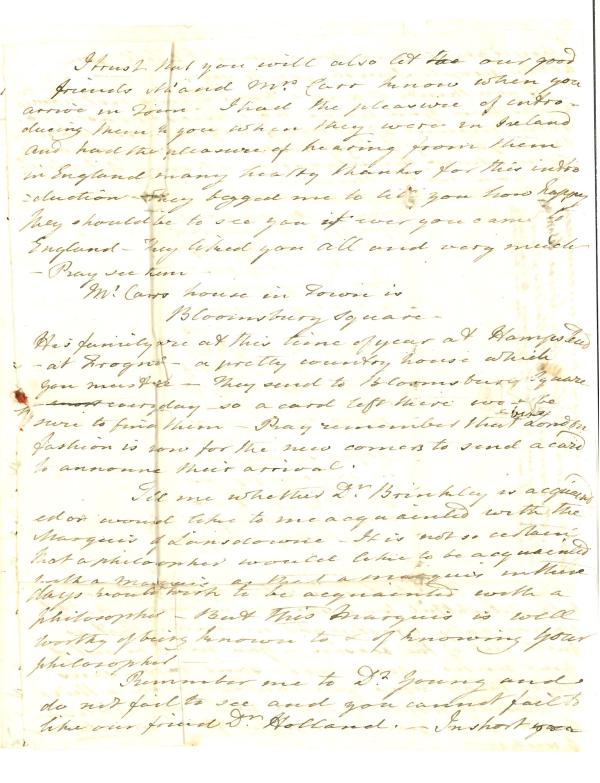 I trust that you will also let our good
friends Mr and Mrs Carr know when you
arrive in Town. I had the pleasure of intro-
ducing them to you when they were in Ireland
and had the pleasure of hearing from them
in England many hearty thanks for this intro
-duction - They begged me to tell you how happy
they should be to see you if ever you came
England - They liked you all and very much
- Pray see them -
Mr Carrs house in Town is
Bloomsbury Square -
His family are at this time of year at Hampstead
- at Frognal - a pretty country house which
you must see - They send to Bloomsbury Square
everyday - so a card left there would be
sure to find them - Pray remember that London
fashion is now for the new comers to send a card
to announce their arrival.
Tell me whether Dr Brinkley is acquaint
ed or would like to me acquainted with the
Marquis of Lansdowne - It is not so certain
that a philosopher would like to be acquainted
with a marquis as that a marquis in these
days would wish to be acquainted with a
philosopher - But this Marquis is well
worthy of being known to & of knowing your
philosopher -
Remember me to Dr Young and
do not fail to see and you cannot fail to
like our friend Dr Holland. - In short